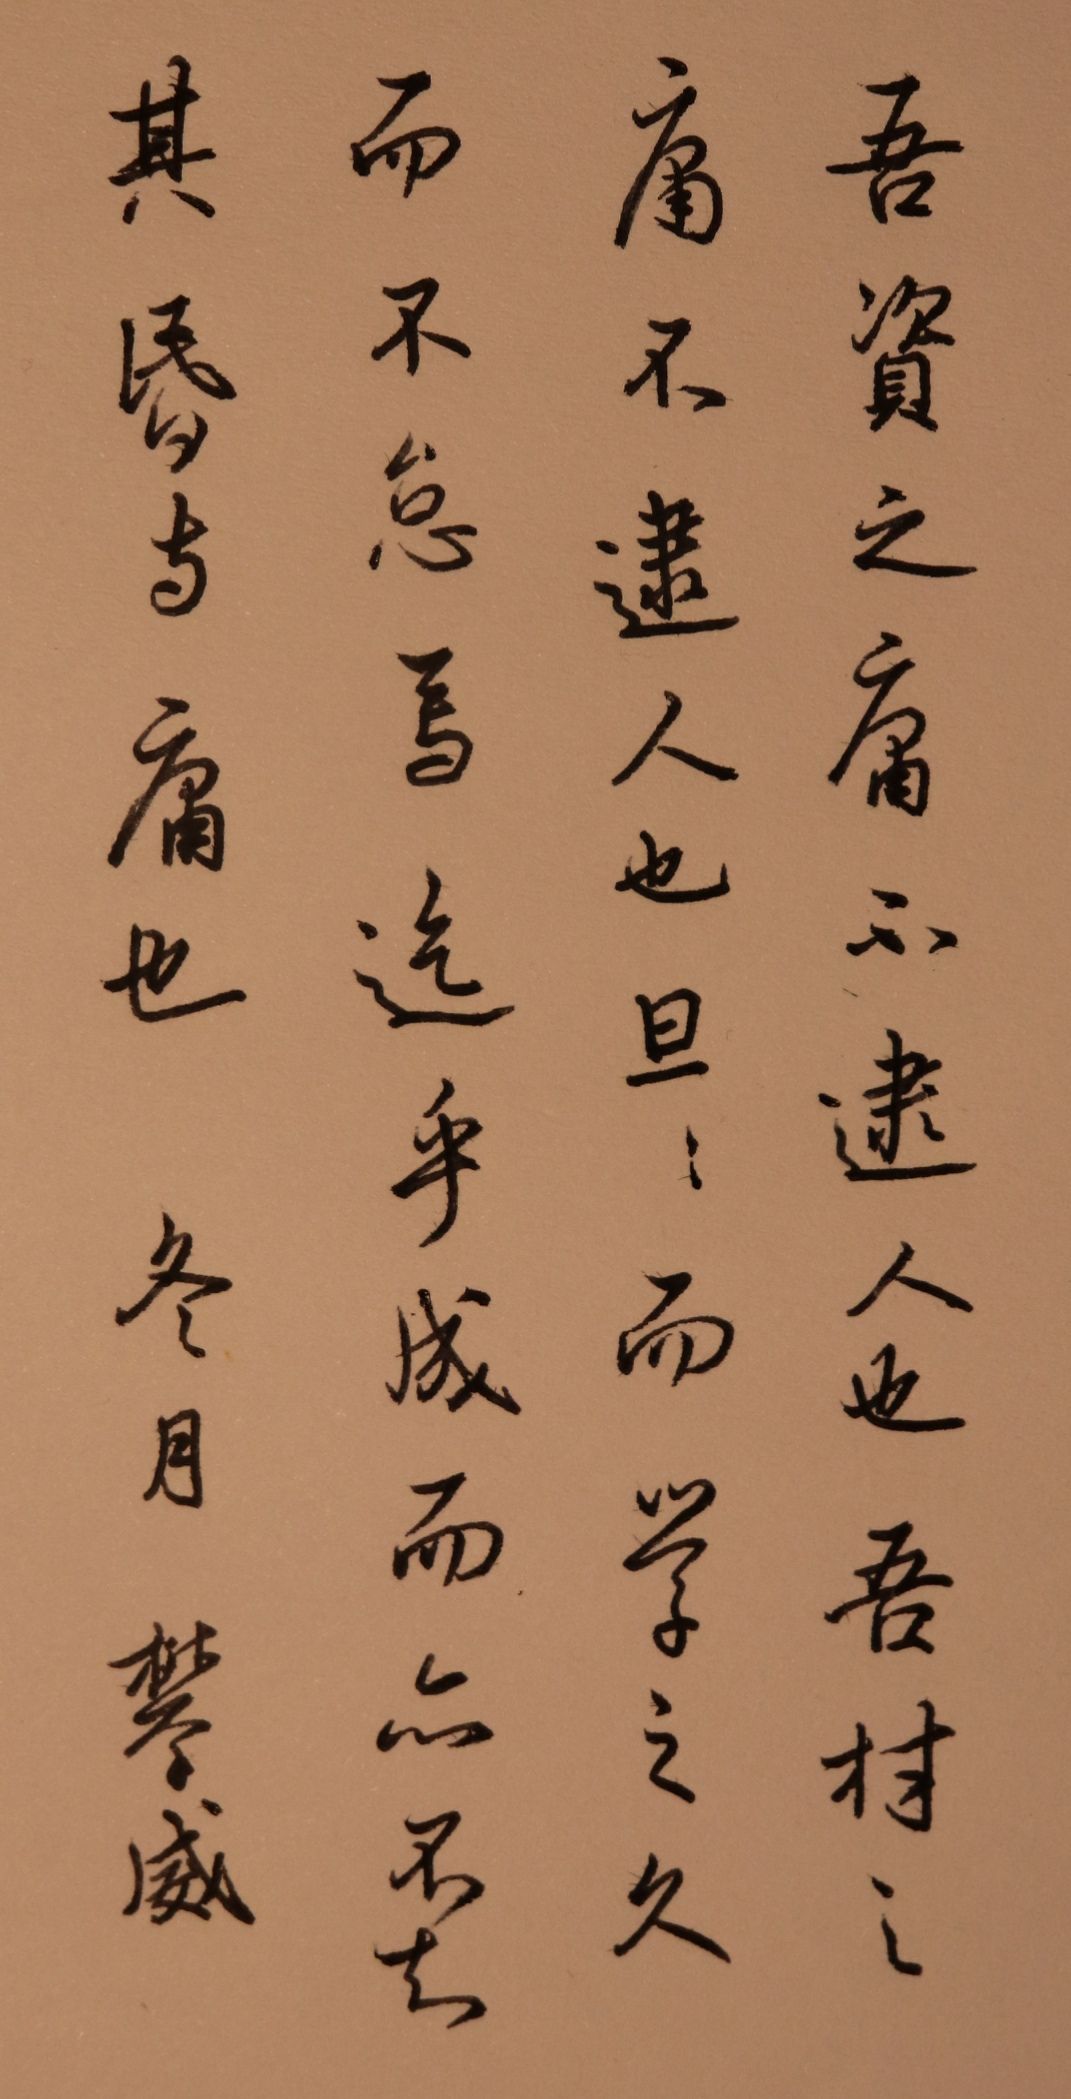 吾資之庸不逮人也吾材之
庸不逮人也旦〻而学之久
而不怠焉迄乎成而亦不知
其昬与庸也 冬月 攀威